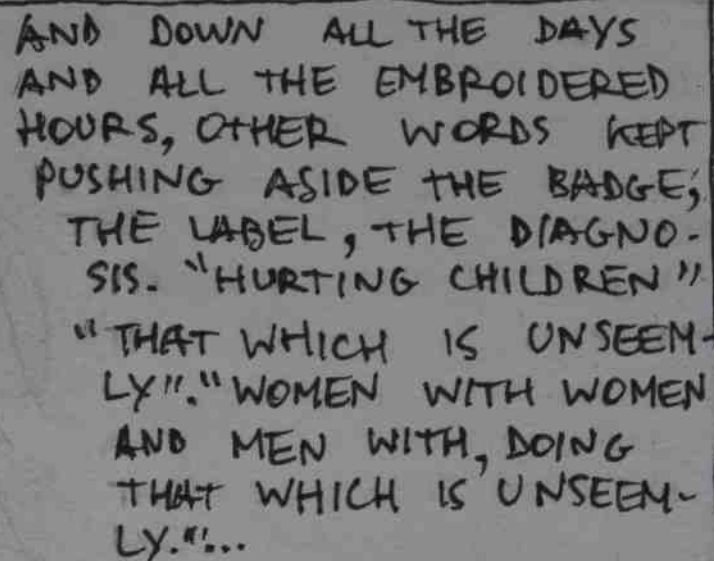 AND DOWN ALL THE DAYS
AND ALL THE EMBROIDERED
HOURS, OTHER WORDS KEPT
PUSHING ASIDE THE BADGE,
THE LABEL, THE DIAGNO-
SIS. "HURTING CHILDREN"
"THAT WHICH IS UNSEEM-
LY"."WOMEN WITH WOMEN
AND MEN WITH, DOING
THAT WHICH IS UNSEEM-
LY."...